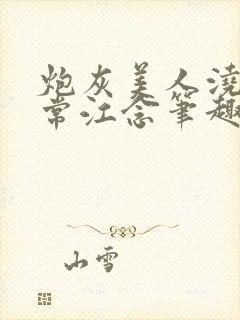 炮灰美人渣
常江念笔趣
山雪